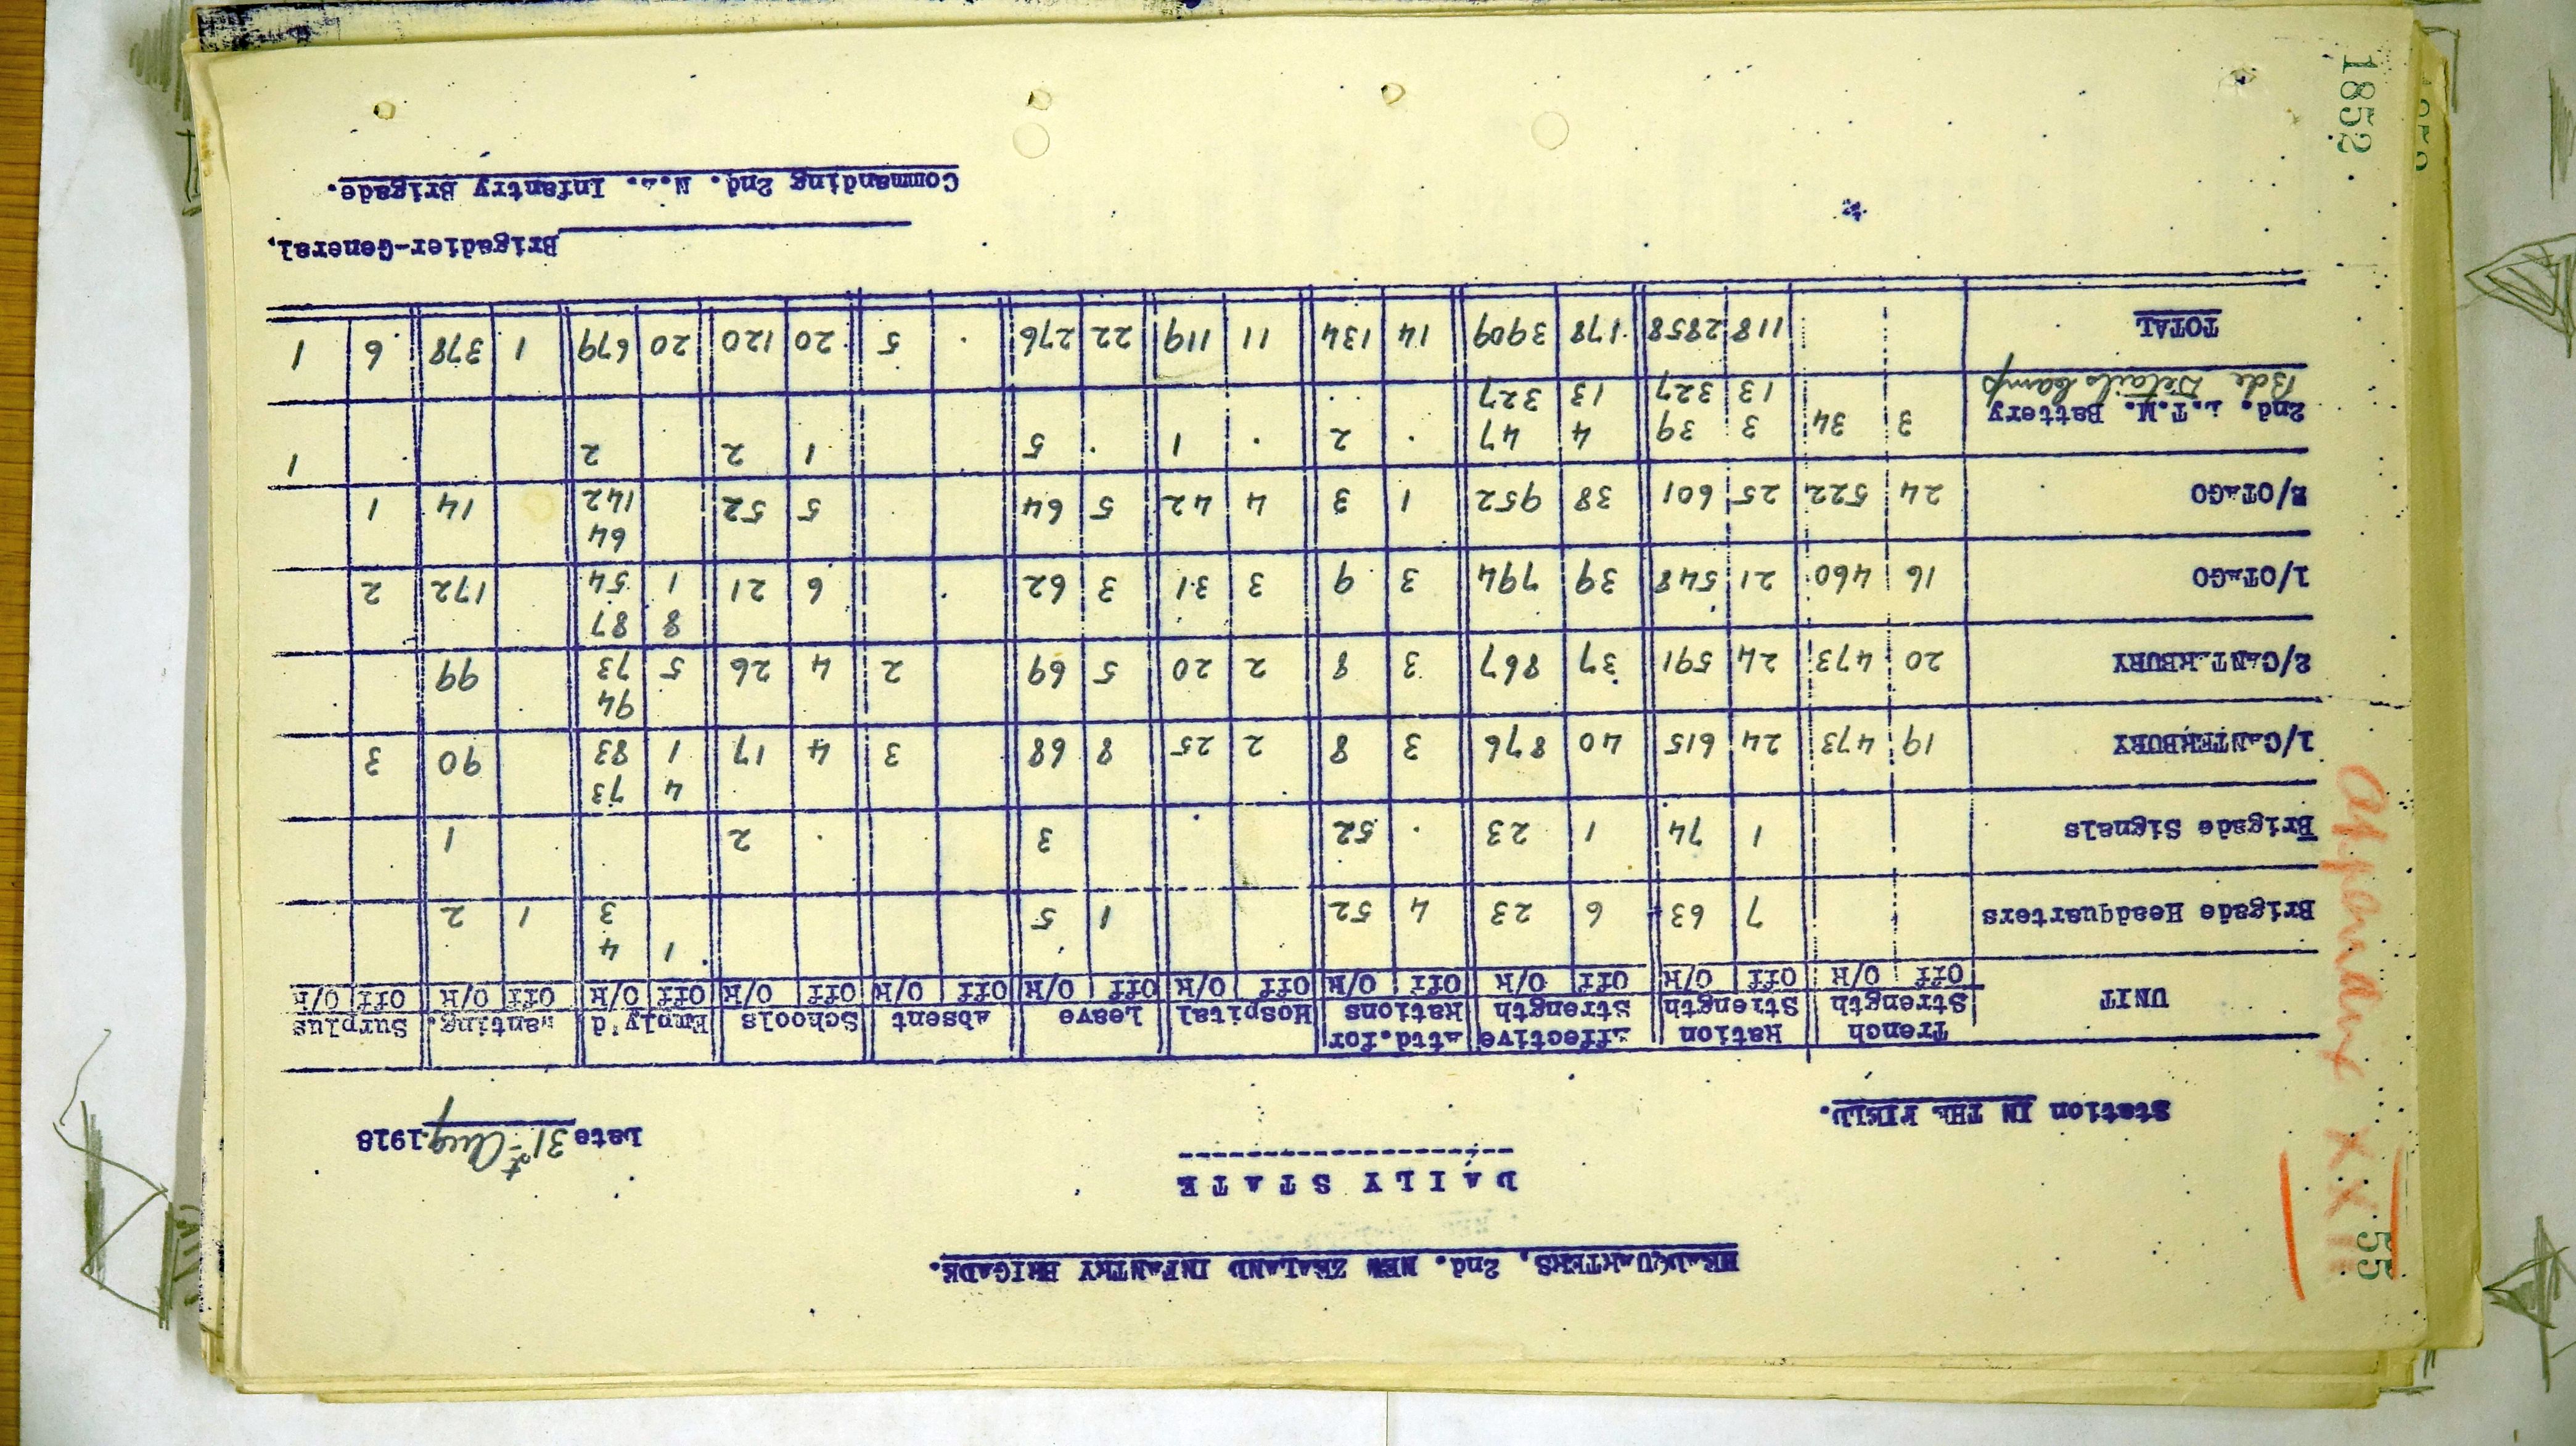 Appendix XXIII
55
HEADQUARTERS, 2nd. NEW ZEALAND INFANTRY BRIGADE.
DAILY STATE
Station IN THE FIELD.
Date 31st Aug 1918
UNIT | Trench Strength | Ration Strength | Effective Strength | Attd.for Rations | Hospital | Leave | Absent | Schools | Emply'd | Wanting. | Surplus
Off O/R | Off O/R | Off O/R | Off O/R | Off O/R | Off O/R | Off O/R | Off O/R | Off O/R | Off O/R | Off O/R
Brigade Headquarters | | 7 63 | 6 23 | 4 52 | | 1 5 | | | 1 4 3 | 1 2 |
Brigade Signals | | 1 74 | 1 23 | . 52 | | 3 | | . 2 | | 1 |
1/CANTERBURY | 19 473 | 24 615 | 40 876 | 3 8 | 2 25 | 8 68 | 3 | 4 17 | 4 73 1 83 | 90 | 3
2/CANTERBURY | 20 473 | 24 591 | 37 867 | 3 8 | 2 20 | 5 69 | 2 | 4 26 | 94 5 73 | 99 |
1/OTAGO | 16 460 | 21 548 | 39 794 | 3 9 | 3 31 | 3 62 | . | 6 21 | 8 87 1 54 | 172 | 2
2/OTAGO | 24 522 | 25 601 | 38 952 | 1 3 | 4 42 | 5 64 | | 5 52 | 64 142 | 14 | 1
2nd. L.T.M. Battery | 3 34 | 3 39 | 4 47 | . 2 | . 1 | . 5 | | 1 2 | 2 | | . 1
Bde Details Camp | | 13 327 | 13 327
TOTAL | | 118 2858 | 178 3909 | 14 134 | 11 119 | 22 276 | . 5 | 20 120 | 20 679 | 1 378 | 6 1
Brigadier-General,
Commanding 2nd. N.Z. Infantry Brigade.
1852